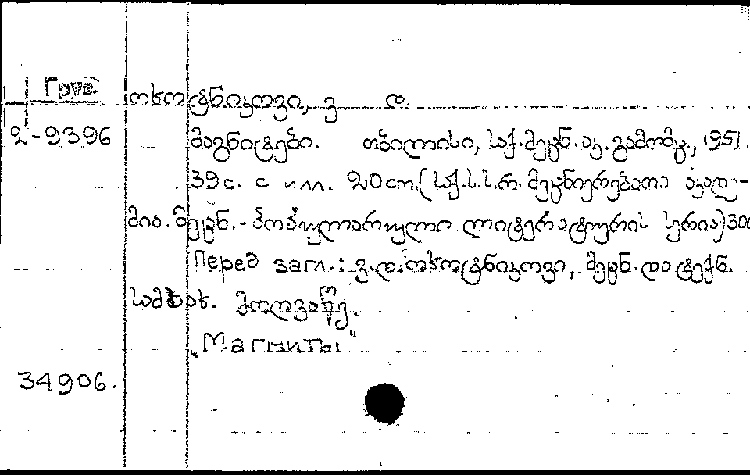 Груз
ოხოტნიკოვი, ვ. დ.
2-9396 მაგნიტები. თბილისი, საქ. მეცნ. აკ. გამომც., 1951.
39с. с илл. 20см. (საქ. ს.ს.რ. მეცნიერებათა აკადე-
მია. მეცნ.-პოპულარული ლიტერატურის სერია) 300
Перед загл.: ვ. დ. ოხოტნიკოვი, მეცნ. და ტექნ.
მოღვაწე.
„Магниты"
34906.